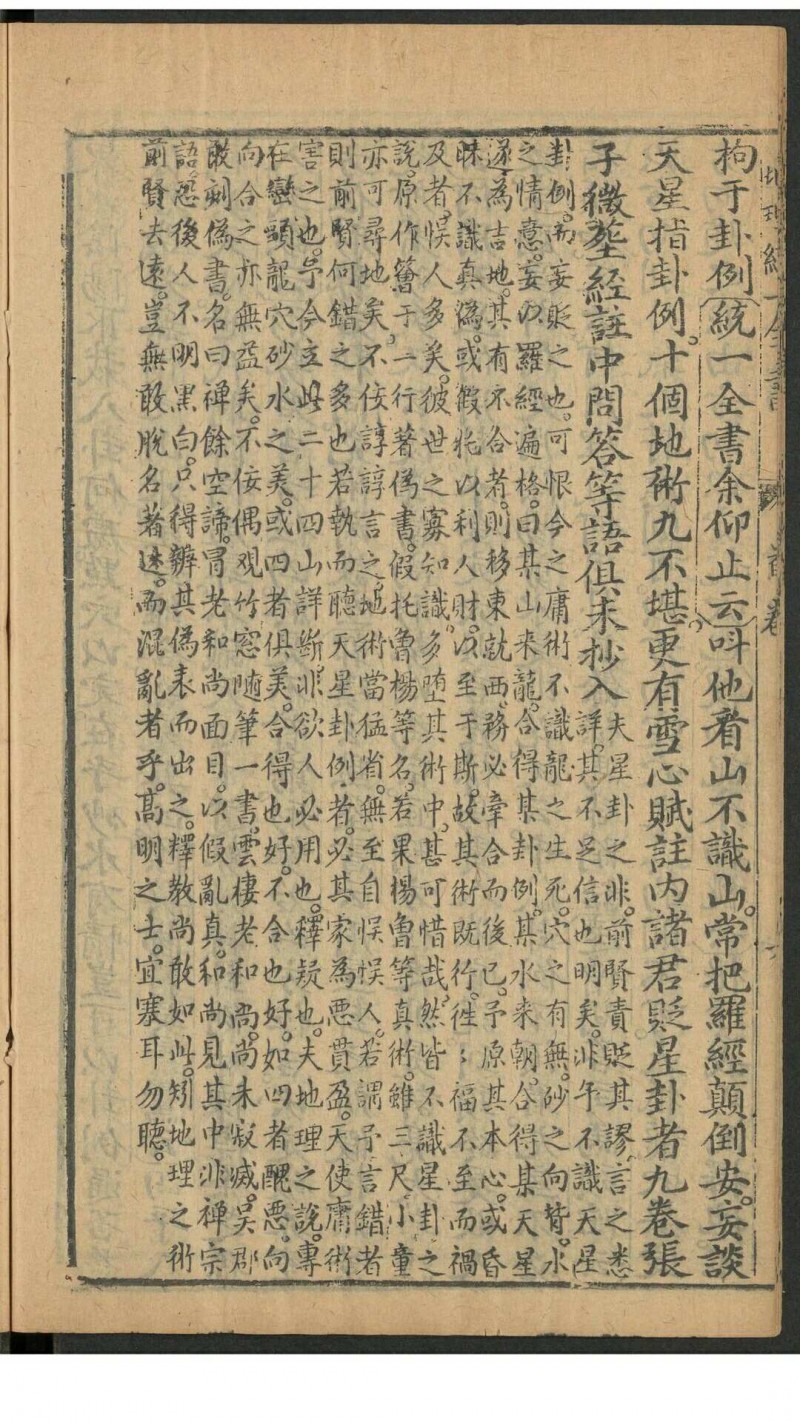 統一全書 首卷
拘于卦例統一全書余仰止云叫他看山不識山。常把羅經顛倒安。妄談
天星指卦例。十個地術九不堪。更有雪心賦註内諸君貶星卦者九卷張
子微塟經註中問答等語俱未抄入
夫星卦之非。前賢責貶其謬言之悉
詳。其不足信也明矣。非予不識天星
卦例。而妄貶之也。可恨今之庸術不識龍之生死。穴之有無。砂之向背。水
之情意。妄以羅經遍格。曰某山来龍。合得某卦例。某水来朝。合得某天星
遂為吉地。其有不合者。則移東就西。務必牽合而後已。予原其本心。或昏
昧不識真偽。或假托以利人財。以至于斯。故其術既行。徃〻福不至而禍
及者。悞人多矣。彼世之寡知識。多堕其術中。甚可惜哉。然皆不識星卦之
說。原作簪于一行著偽書。假托魯楊等名。若果楊魯等真術。雖三尺小童
亦可尋地矣。不佞諄諄言之。地術當猛省。無至自悞悞人。若謂予言錯者
則前賢何錯之多也若執而聽天星卦例者。必其家為惡貫盈。天使庸術
害之也。予今立此二十四山詳断。非欲人必用也。釋疑也。夫地理之說。專
在巒頭龍穴砂水之美。或四者俱美。合得也好。不合也好。如四者醜惡。向
向合之亦無益矣。不佞偶观竹窓随筆一書。雲棲老和尚。尚未寂滅。吳郡
敢刻偽書。名曰禅餘空諦。冒老和尚面目。以假亂真。和尚見其中非禅宗
語。恐後人不明黑白。只得辨其偽表而出之。釋教尚敢如此。矧地理之術
前賢去遠。豈無敢脫名著述。而混亂者乎。高明之士。宜塞耳勿聽。